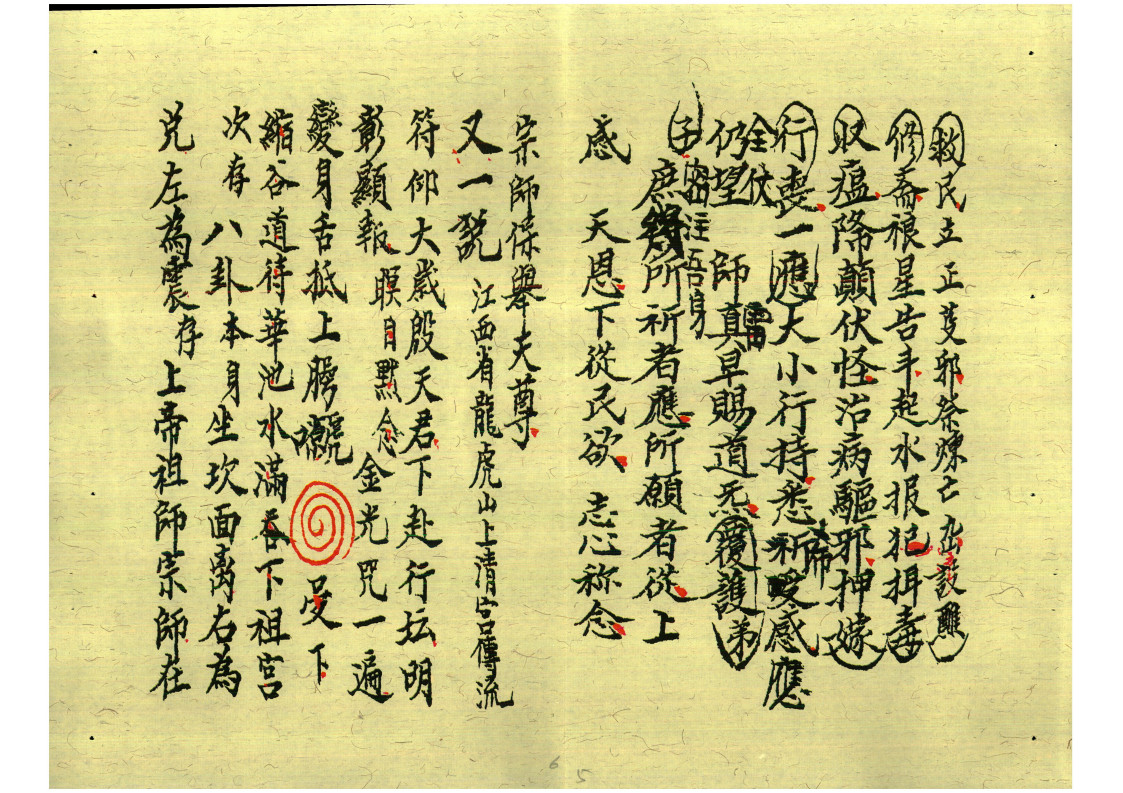 救民立正芟邪祭煉亡 設醮
修齋禳星告斗起水报犯揖毒
収瘟降顛伏怪治病驅邪押嫁
行喪一應大小行持悉祈 感應
全伏
仍望 師真早賜道炁覆護弟
雷
子 密注吾身
庶 所祈者應所願者從上
感 天恩下從民欲 志心称念
宗師保舉天尊
又一說 江西省龍虎山上清宮傳流
符仰大歲殷天君下赴行坛明
彰顯報 瞑目默念金光咒一遍
變身舌抵上腭 受下
縮谷道待華池水滿吞下祖宮
次存八卦本身坐坎面离右為
兑左為震存上帝祖師宗師在
6 5